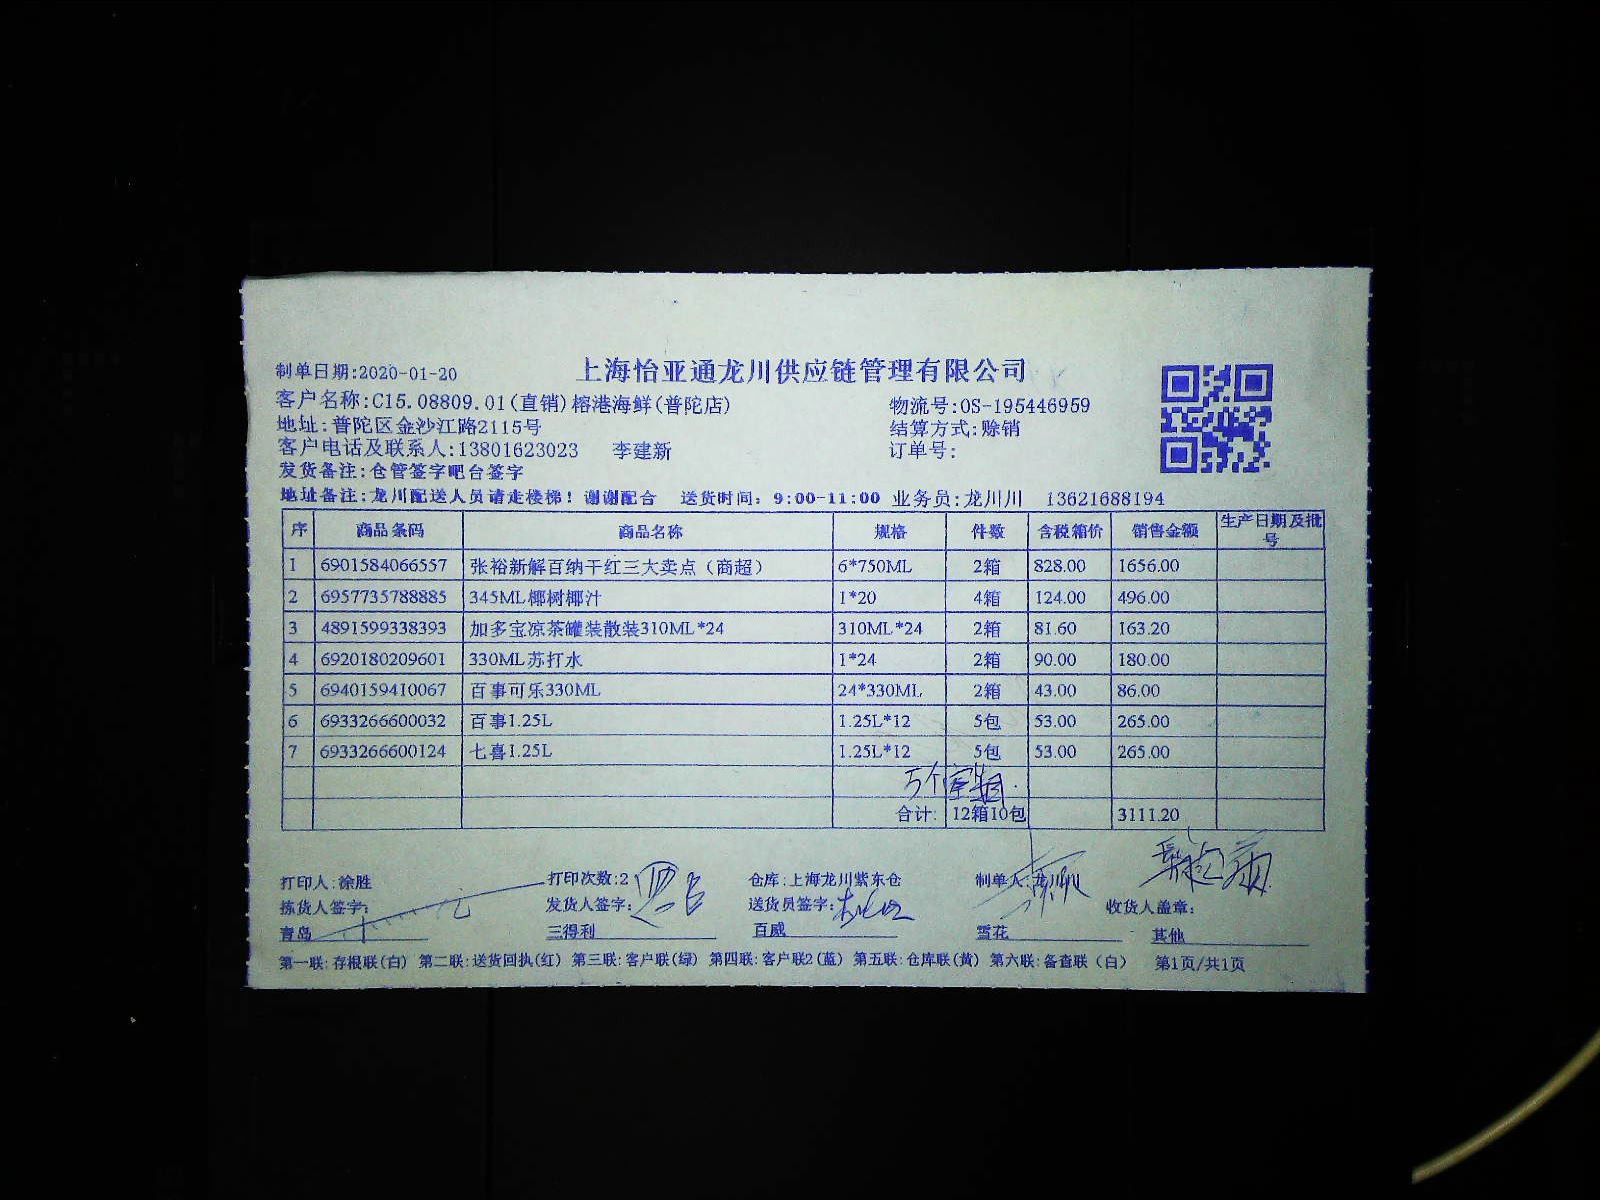 上海怡亚通龙川供应链管理有限公司
制单日期:2020-01-20
客户名称:C15.08809.01(直销)榕港海鲜(普陀店) 物流号:OS-195446959
地址:普陀区金沙江路2115号 结算方式:赊销
客户电话及联系人:13801623023 李建新 订单号:
发货备注:仓管签字吧台签字
地址备注:龙川配送人员请走楼梯！谢谢配合 送货时间：9:00-11:00 业务员:龙川川 13621688194
序 商品条码 商品名称 规格 件数 含税箱价 销售金额 生产日期及批号
1 6901584066557 张裕新解百纳干红三大卖点（商超） 6*750ML 2箱 828.00 1656.00
2 6957735788885 345ML椰树椰汁 1*20 4箱 124.00 496.00
3 4891599338393 加多宝凉茶罐装散装310ML*24 310ML*24 2箱 81.60 163.20
4 6920180209601 330ML苏打水 1*24 2箱 90.00 180.00
5 6940159410067 百事可乐330ML 24*330ML 2箱 43.00 86.00
6 6933266600032 百事1.25L 1.25L*12 5包 53.00 265.00
7 6933266600124 七喜1.25L 1.25L*12 5包 53.00 265.00
合计: 12箱10包 3111.20
打印人:涂胜 打印次数:2 仓库:上海龙川紫东仓 制单人:龙川川
拣货人签字: 发货人签字: 送货员签字: 收货人盖章:
青岛 三得利 百威 雪花 其他
第一联:存根联(白) 第二联:送货回执(红) 第三联:客户联(绿) 第四联:客户联2(蓝) 第五联:仓库联(黄) 第六联:备查联（白） 第1页/共1页